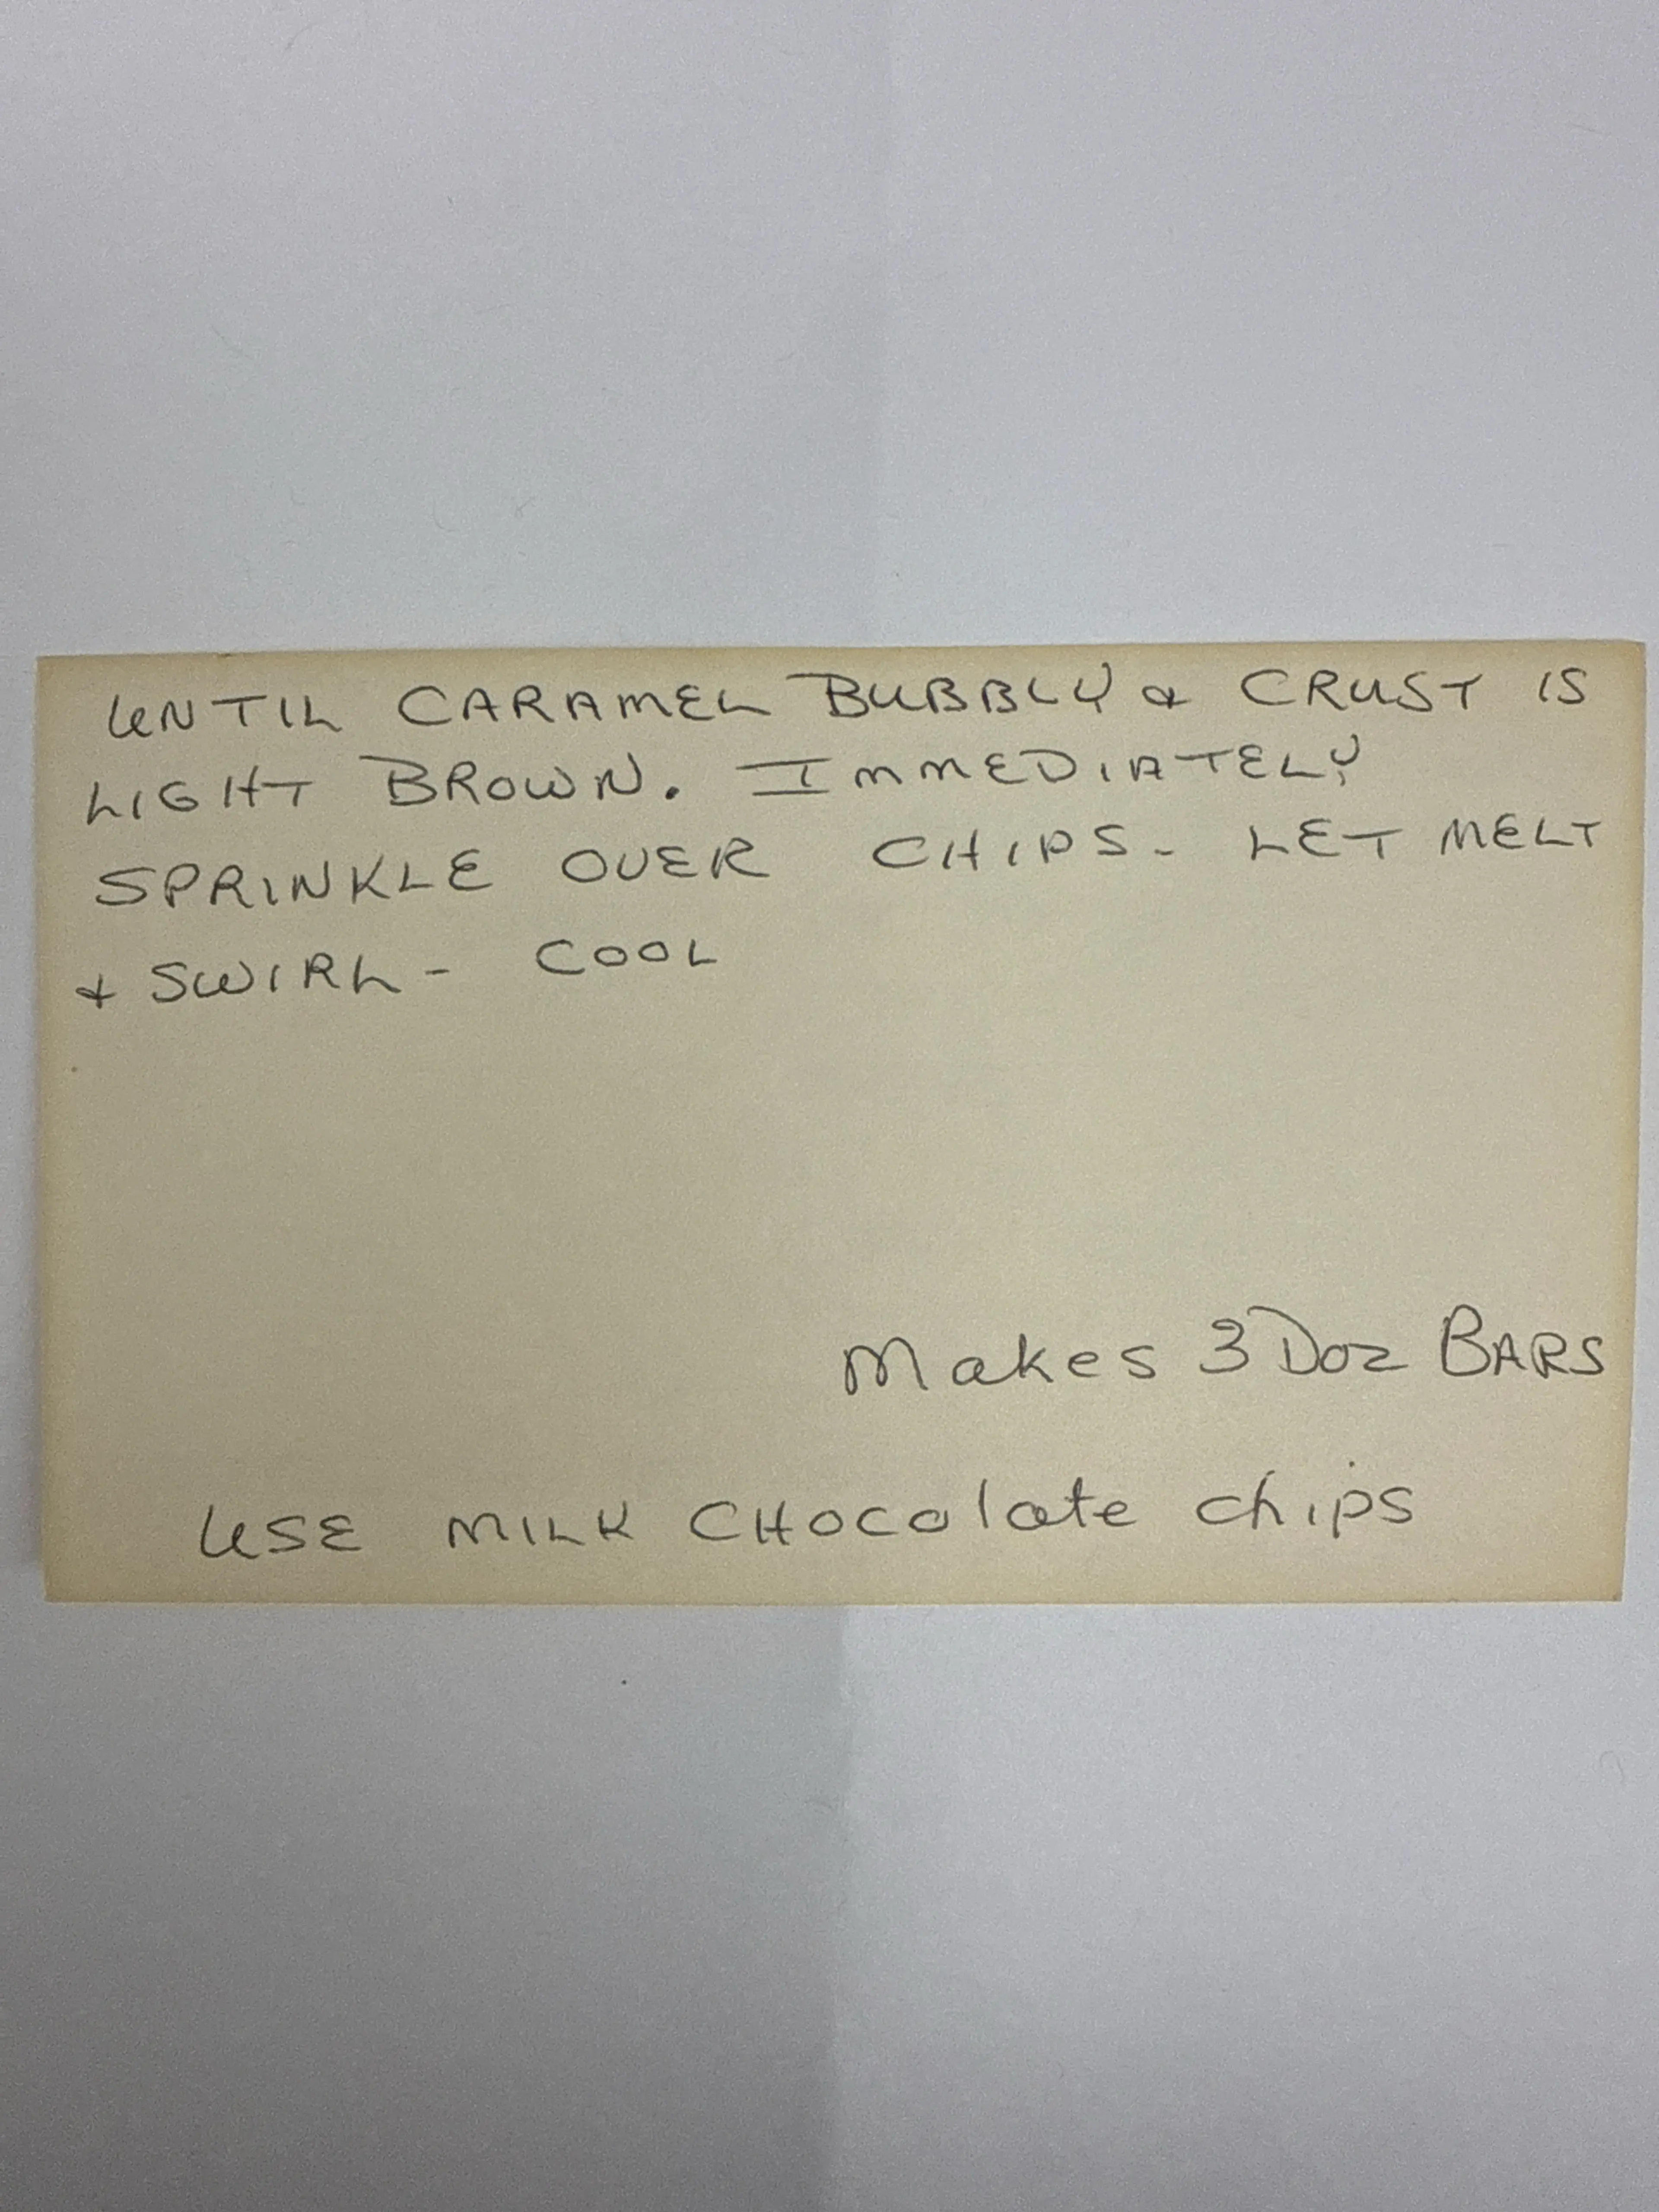 UNTIL CARAMEL BUBBLY & CRUST IS
LIGHT BROWN. IMMEDIATELY
SPRINKLE OVER CHIPS- LET MELT
+ SWIRL - COOL
Makes 3 Doz BARS
USE MILK CHOColate chips